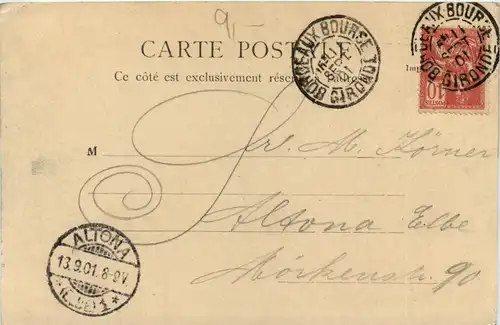 9,-
CARTE POSTALE
Ce côté est exclusivement réservé
BORDEAUX-BOURSE
GIRONDE
BORDEAUX-BOURSE
GIRONDE
10
M
Fr. M. Körner
Altona Elbe
Mörkenstr. 90
ALTONA
13.9.01. 8-9V
* (ELBE) 1 *